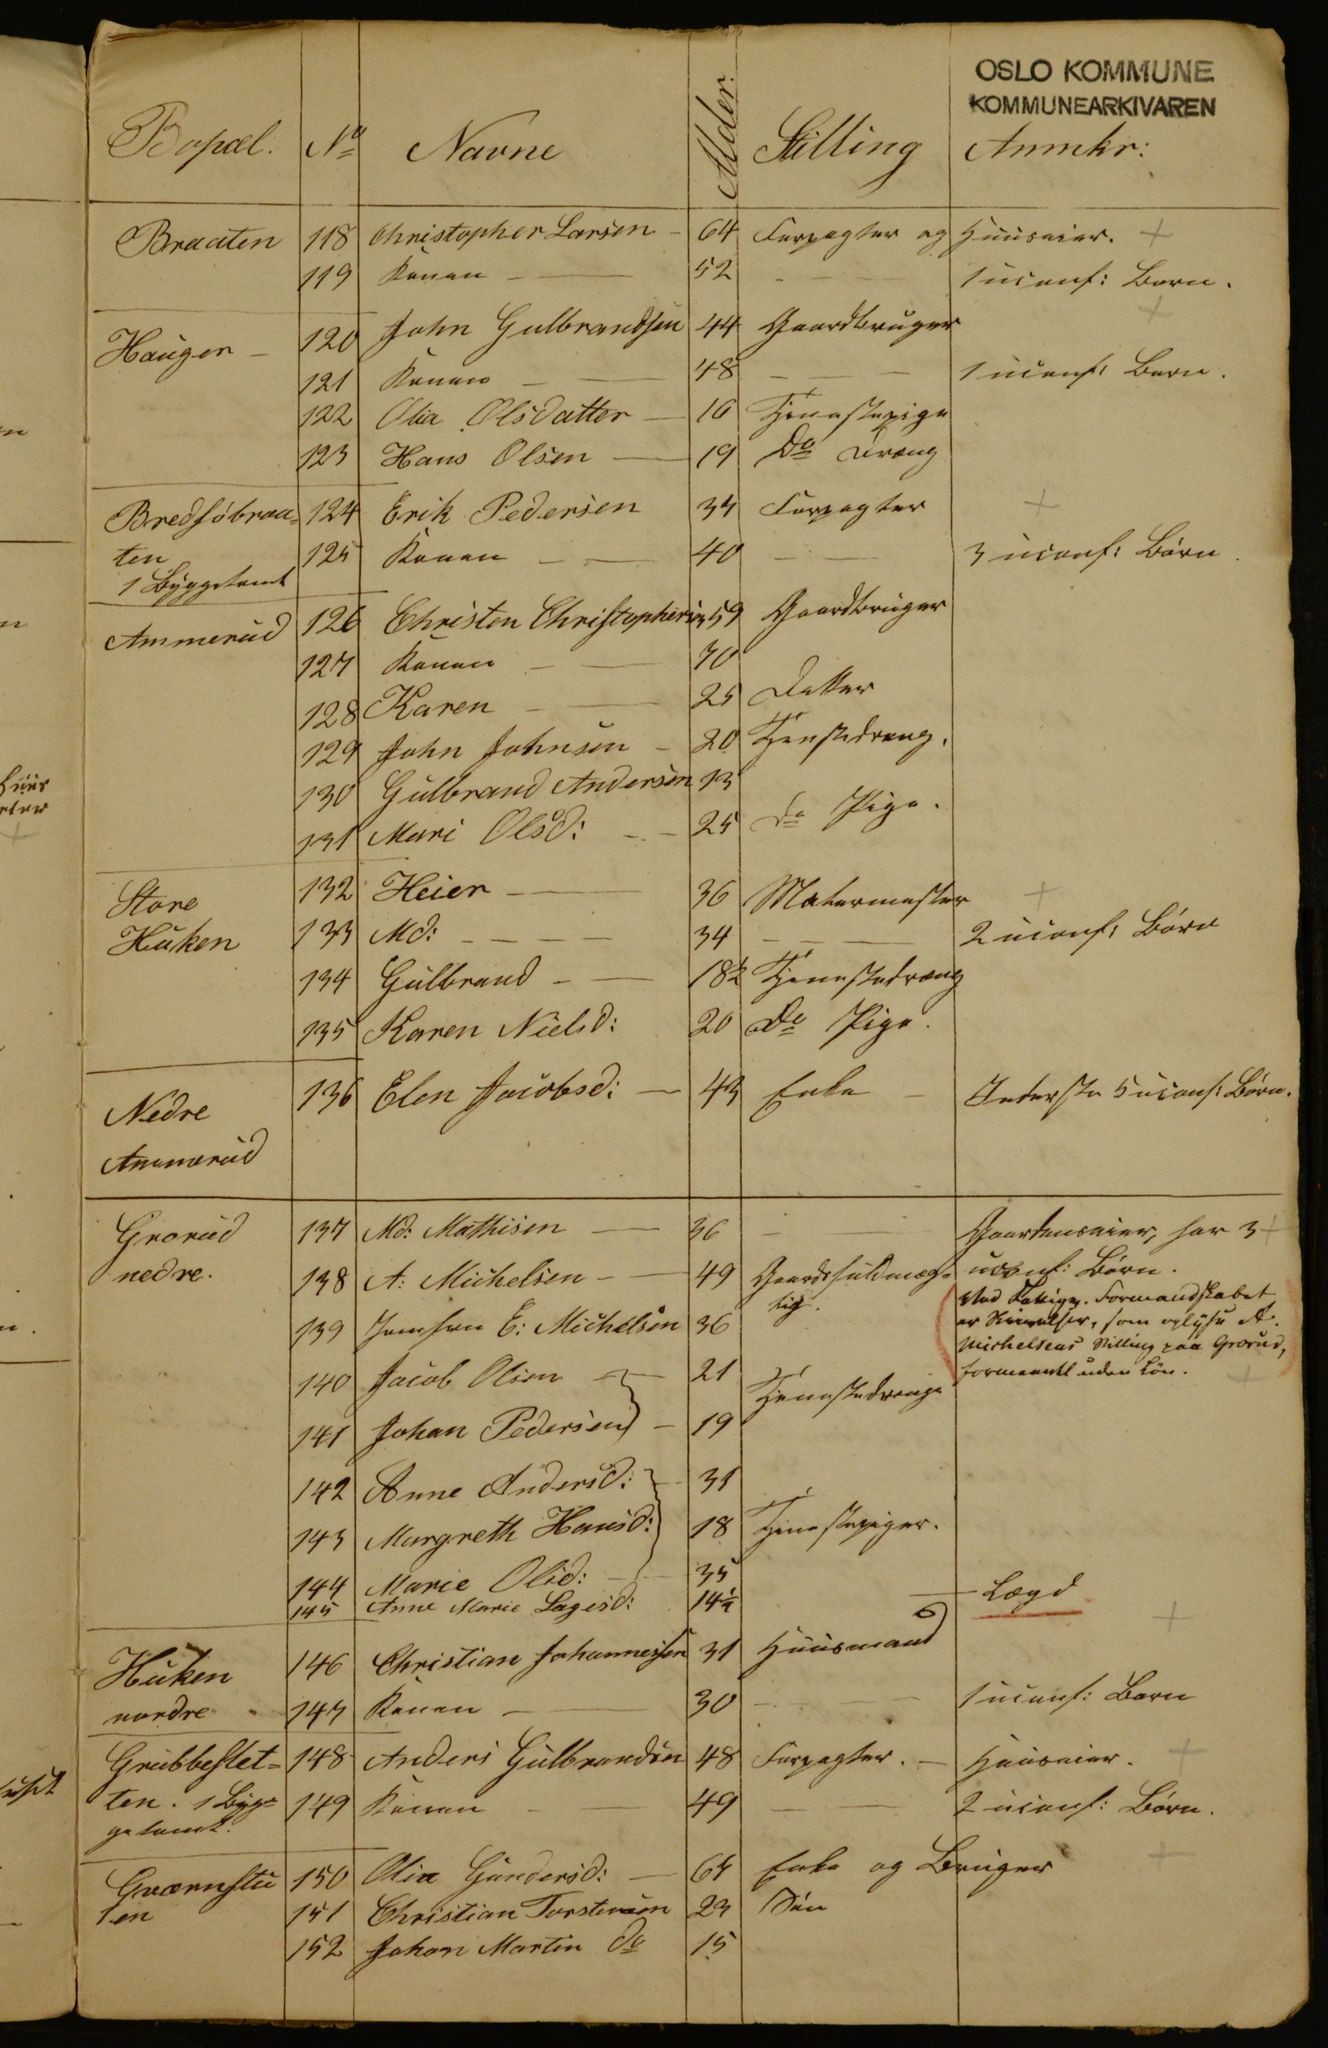 OSLO KOMMUNE
KOMMUNEARKIVAREN
Bopæl. No Navne Alder. Stilling Anmkr:
Braaten 118 Christopher Larsen - 64 Forpagter og Huuseier. +
119 Konen - — 52 - 1 uconf: Barn.
Haugen - 120 John Gulbrandsen 44 Gaardbruger +
121 Konen - — 48 - — — 1 uconf: Barn.
122 Olia Olsdatter — 16 Tjenestepige
123 Hans Olsen — 19 Do Dreng
Bredsøbraa= 124 Erik Pedersen 33 Forpagter +
ten 125 Konen - — 40 - — 3 uconf: Børn.
1 Byggetomt
Ammerud 126 Christen Christophersen 59 Gaardbruger
127 Konen - — 70
128 Karen - — 25 Datter
129 John Johnsen - 20 Tjenstedreng.
130 Gulbrand Andersen 13
131 Mari Olsd: - - 25 do Pige.
Store 132 Heier - — 36 Malermester +
Huken 133 Md: - - - - 34 - - — 2 uconf: Børn
134 Gulbrand - — 18½ Tjenestedreng
135 Karen Nielsd: 20 Do Pige.
Nedre 136 Elen Jacobsd: — 43 Enke - Inderste 5 uconf: Børn.
Ammerud
Grorud 137 Md: Mathisen — 36 - — Gaardenseier, har 3 +
nedre. 138 A: Michelsen - — 49 Gaardsfuldmæg= uconf: Børn.
tig.
139 Jomfru E: Michelsen 36
Ved Fattig. Formandskabet
er Skrivelser, som oplyse A.
Michelsens Stilling paa Grorud,
formeentl uden Løn. +
140 Jacob Olsen - — 21 Tjenestedrenge
141 Johan Pedersen - 19
142 Anne Andersd: — 31
143 Margreth Hansd: 18 Tjenestepiger.
144 Marie Olsd: - — 35
145 Anne Marie Lagesd: 14½ — Lægd
Huken 146 Christian Johannessen 31 Huusmand +
nordre 147 Konen - 30 - — 1 uconf: Barn
Grubbeslet= 148 Anders Gulbrandsen 48 Forpagter. — Huuseier. +
ten. 1 Byg= 149 Konen - — 49 - — 2 uconf: Børn.
getomt.
Qværnstu 150 Olia Gundersd: — 65 Enke og Bruger +
en 151 Christian Torstensen 23 Søn
152 Johan Martin do 15